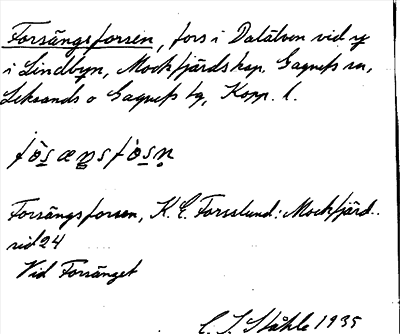 Forsängsforsen, fors i Dalälven vid
i Lindbyn, Mockfjärds kap. Gagnefs sn,
Leksands o Gagnefs tg, Kopp. l.
Forsängsforsen, K. E. Forsslund: Mockfjärd..
sid 24
Vid Forsänget
C. I. Ståhle 1935